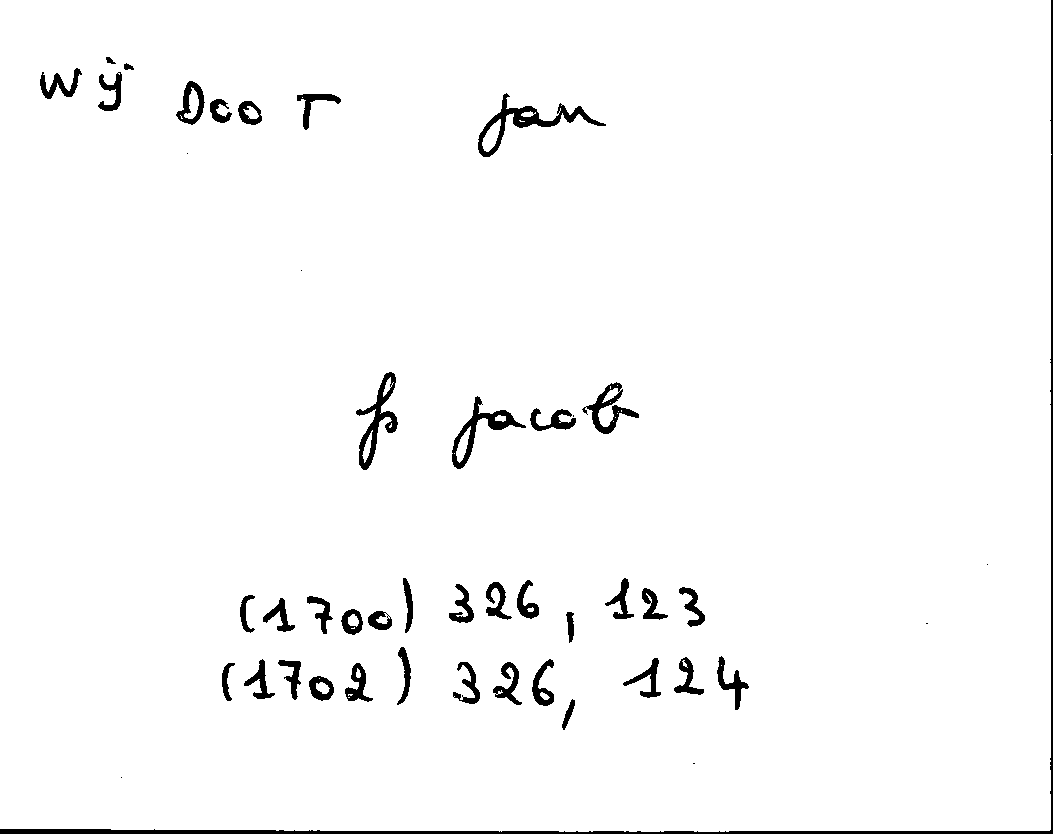 Wÿ DooT jan
fs jacob
(1700) 326, 123
(1702) 326, 124